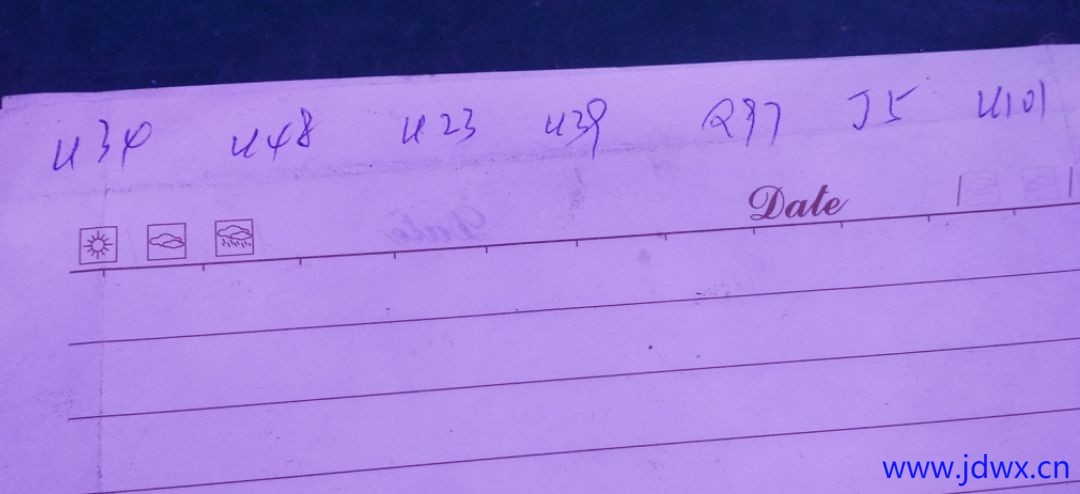 U34 U48 U23 U39 Q37 J5 U101
Date
www.jdwx.cn